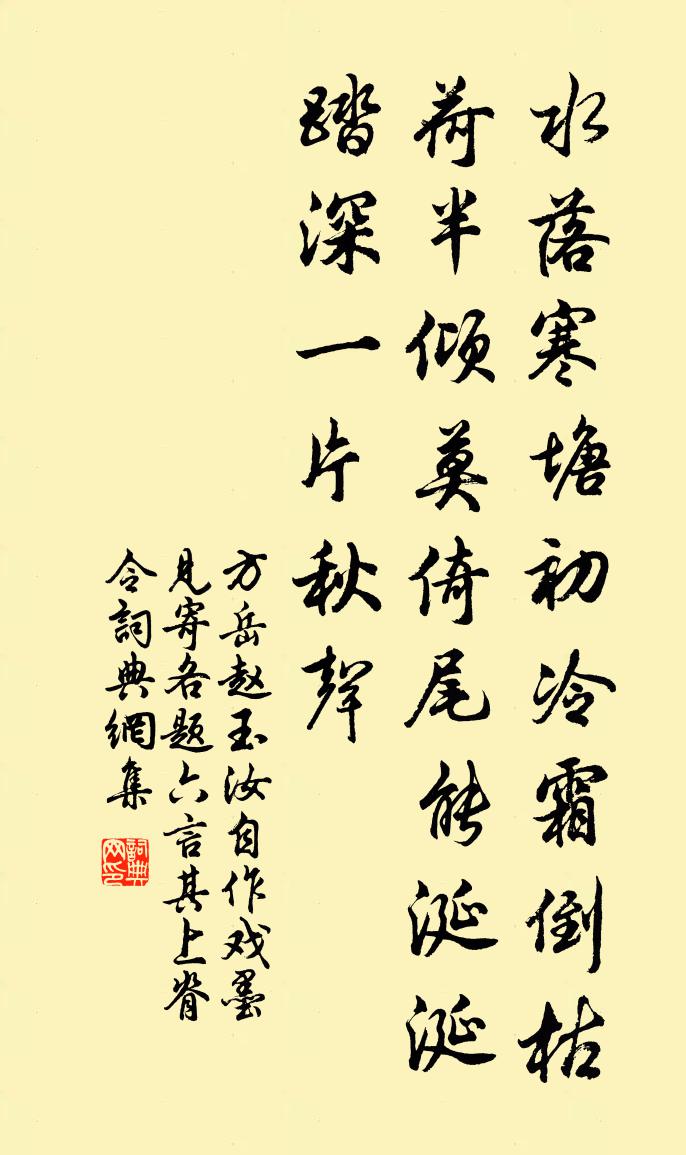 水落寒塘初冷霜倒枯
荷半倾莫倚尾能涎涎
踏深一片秋聲
方岳赵玉汝自作戏墨
見寄各题六言其上脊
令詞典網集
詞典
网印